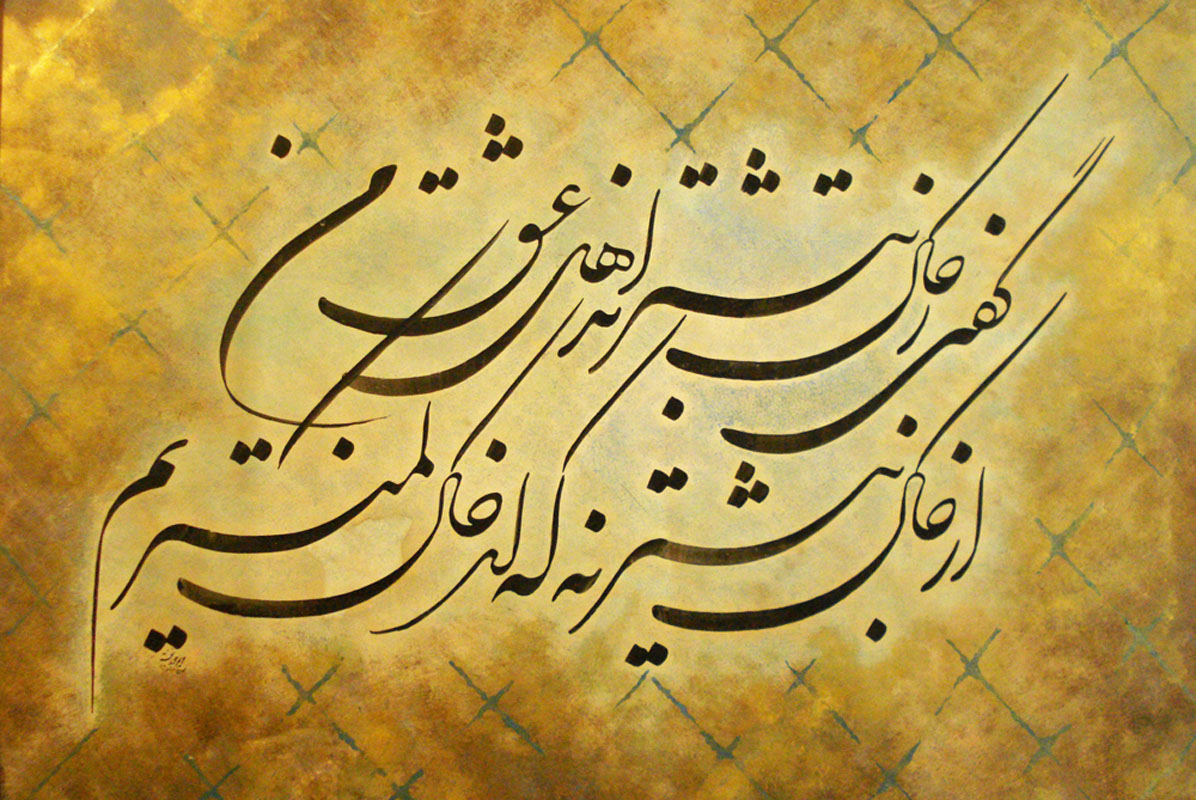 گفتی ز خاک بیشترند اهل عشق من
از خاک بیشتر نه که از خاک کمتریم